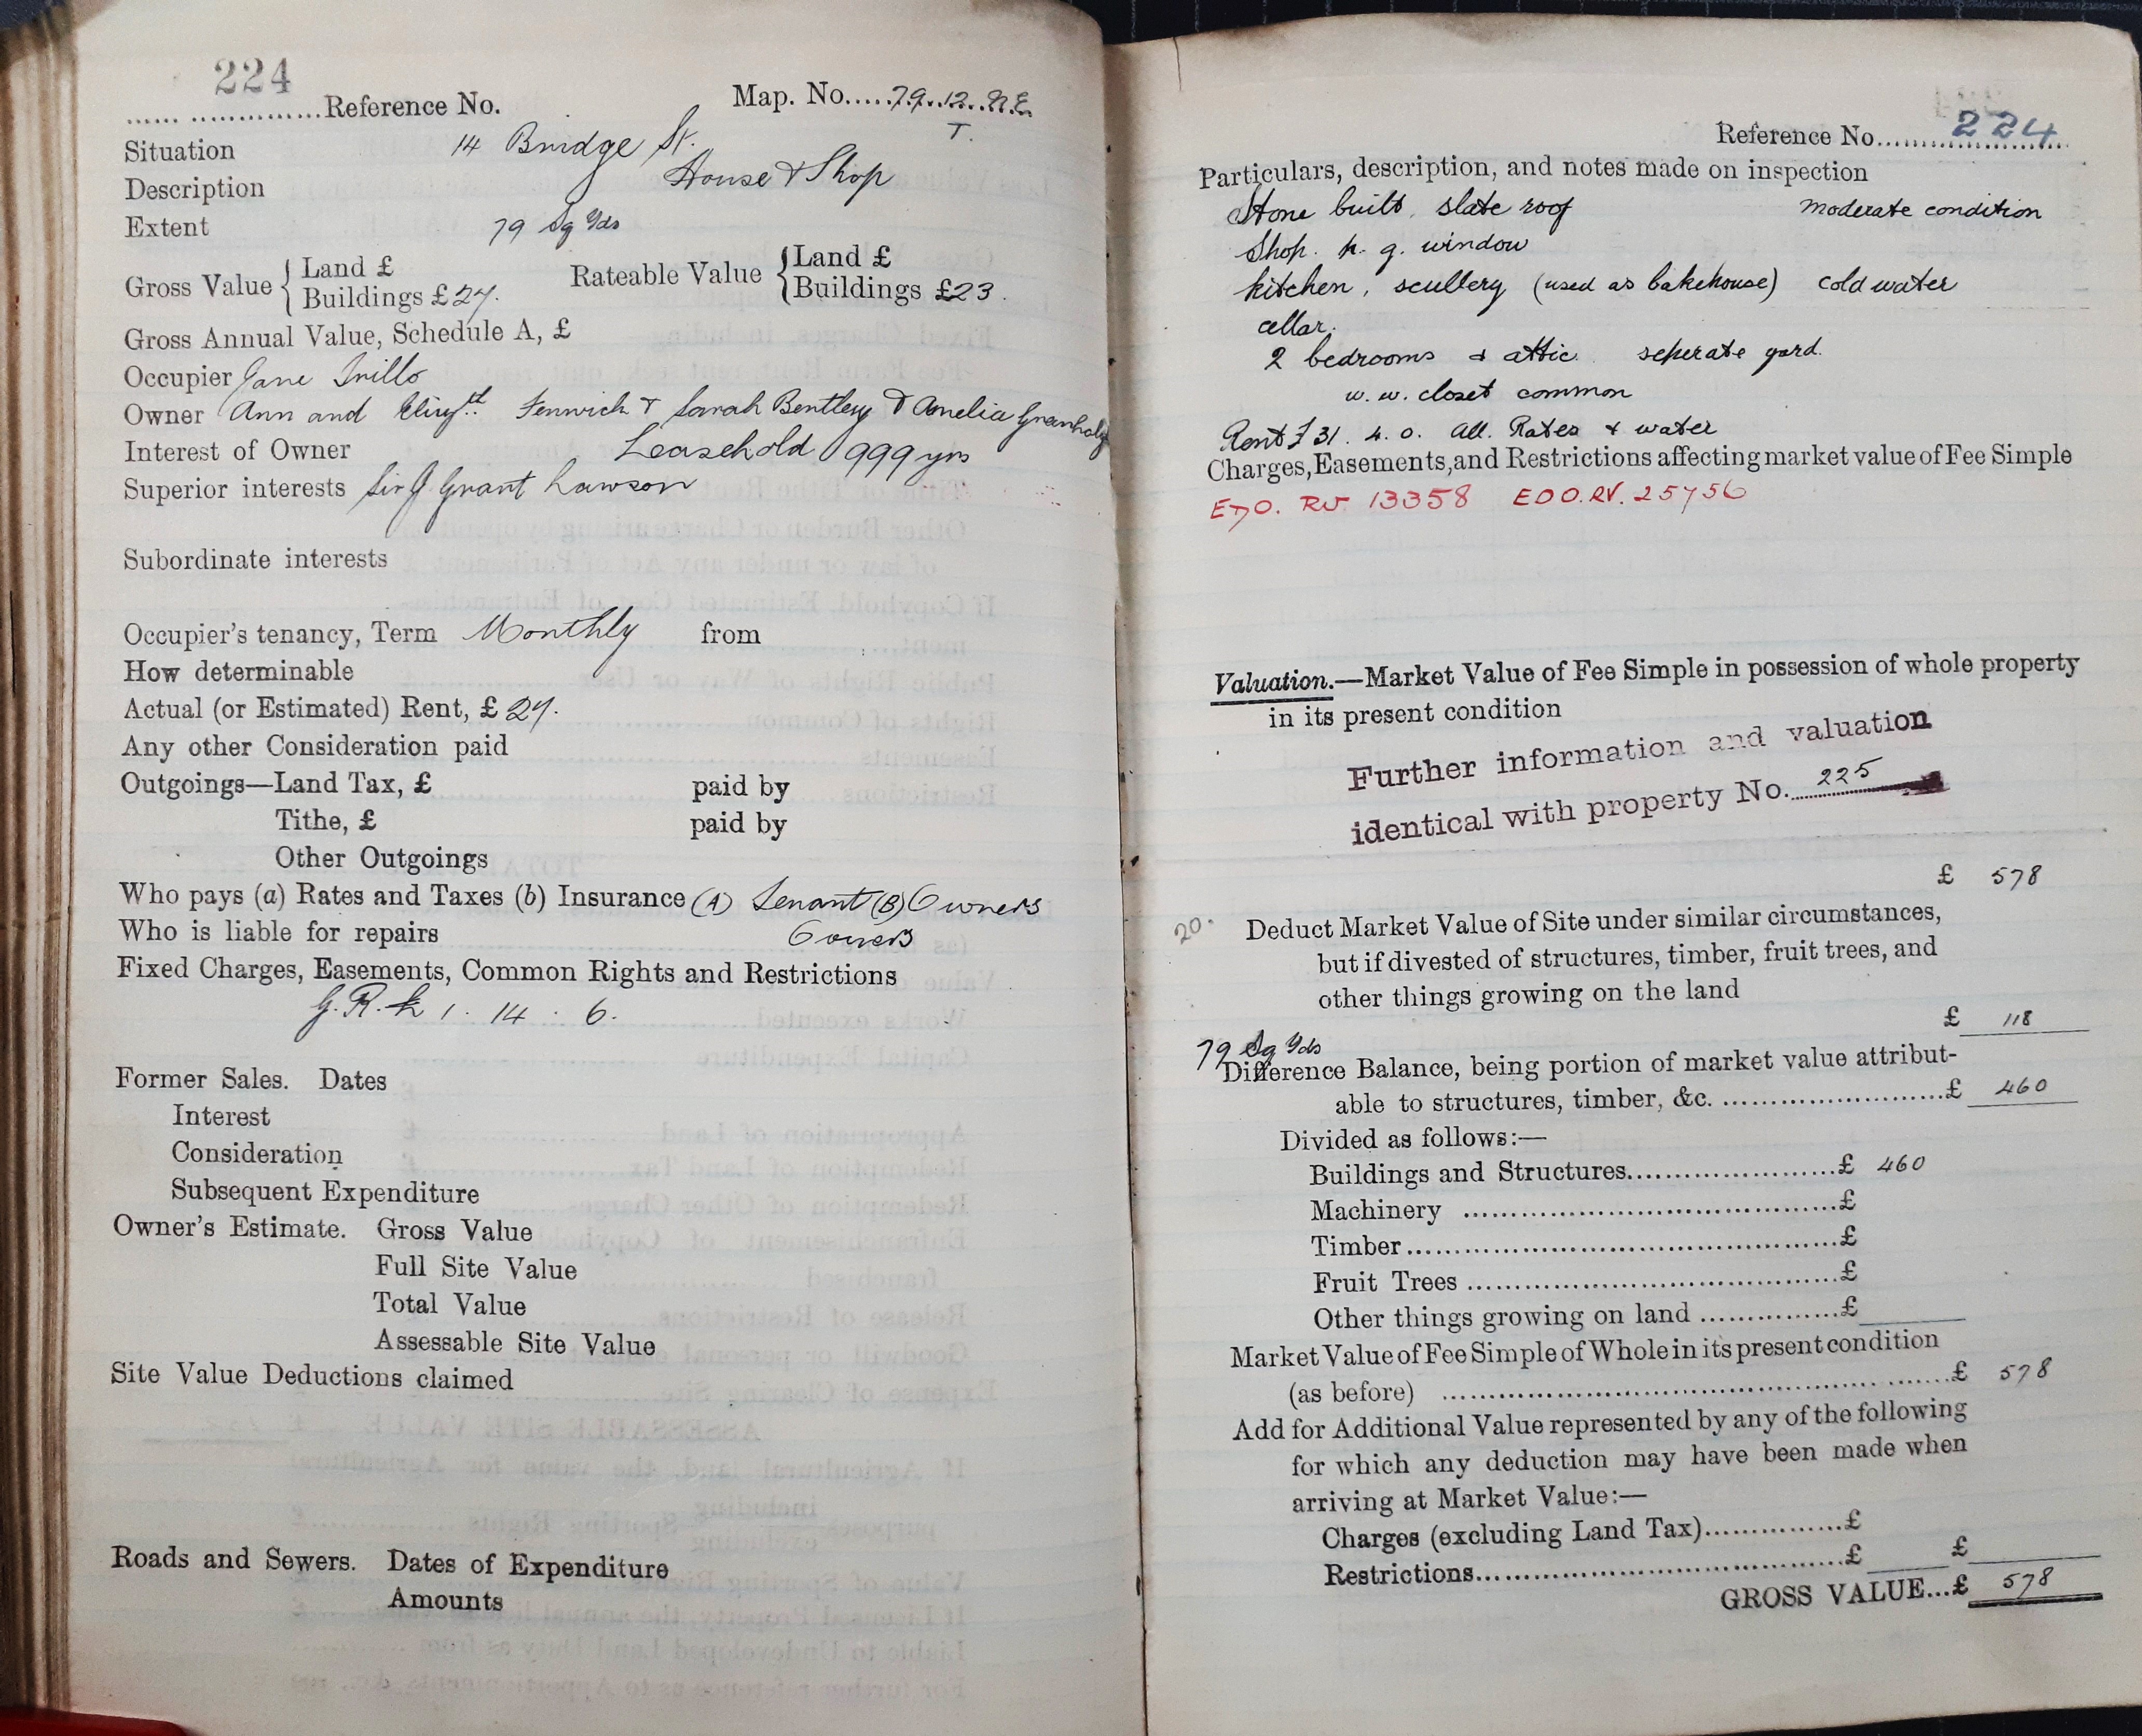 224
Reference No. Map. No. 79.12.N.E.
T.
Situation 14 Bridge St.
Description House & Shop
Extent 79 Sq Yds
Gross Value { Land £
Buildings £27. Rateable Value { Land £
Buildings £23.
Gross Annual Value, Schedule A, £
Occupier Jane
Owner Ann and Elizth Fenwick & Sarah Bentley & Amelia
Interest of Owner Leasehold 999 yrs
Superior interests Sir J Grant Lawson
Subordinate interests
Occupier's tenancy, Term Monthly from
How determinable
Actual (or Estimated) Rent, £ 27.
Any other Consideration paid
Outgoings—Land Tax, £ paid by
Tithe, £ paid by
Other Outgoings
Who pays (a) Rates and Taxes (b) Insurance (A) Tenant (B) Owners
Who is liable for repairs Owners
Fixed Charges, Easements, Common Rights and Restrictions
G.R. £ 1. 14. 6.
Former Sales. Dates
Interest
Consideration
Subsequent Expenditure
Owner's Estimate. Gross Value
Full Site Value
Total Value
Assessable Site Value
Site Value Deductions claimed
Roads and Sewers. Dates of Expenditure
Amounts
Reference No. 224
Particulars, description, and notes made on inspection
Stone built, slate roof moderate condition
Shop. h. g. window
kitchen, scullery (used as bakehouse) cold water
cellar.
2 bedrooms & attic. seperate yard.
w. w. closet common
Rent £31. 4. 0. All. Rates & water
Charges, Easements, and Restrictions affecting market value of Fee Simple
EDO. RV. 13358 EDO. RV. 25756
Valuation.—Market Value of Fee Simple in possession of whole property
in its present condition
Further information and valuation
identical with property No. 225
£ 578
20. Deduct Market Value of Site under similar circumstances,
but if divested of structures, timber, fruit trees, and
other things growing on the land
£ 118
79 Sq Yds
Difference Balance, being portion of market value attribut-
able to structures, timber, &c. £ 460
Divided as follows:—
Buildings and Structures £ 460
Machinery £
Timber £
Fruit Trees £
Other things growing on land £
Market Value of Fee Simple of Whole in its present condition
(as before) £ 578
Add for Additional Value represented by any of the following
for which any deduction may have been made when
arriving at Market Value:—
Charges (excluding Land Tax) £
Restrictions £ £
GROSS VALUE...£ 578